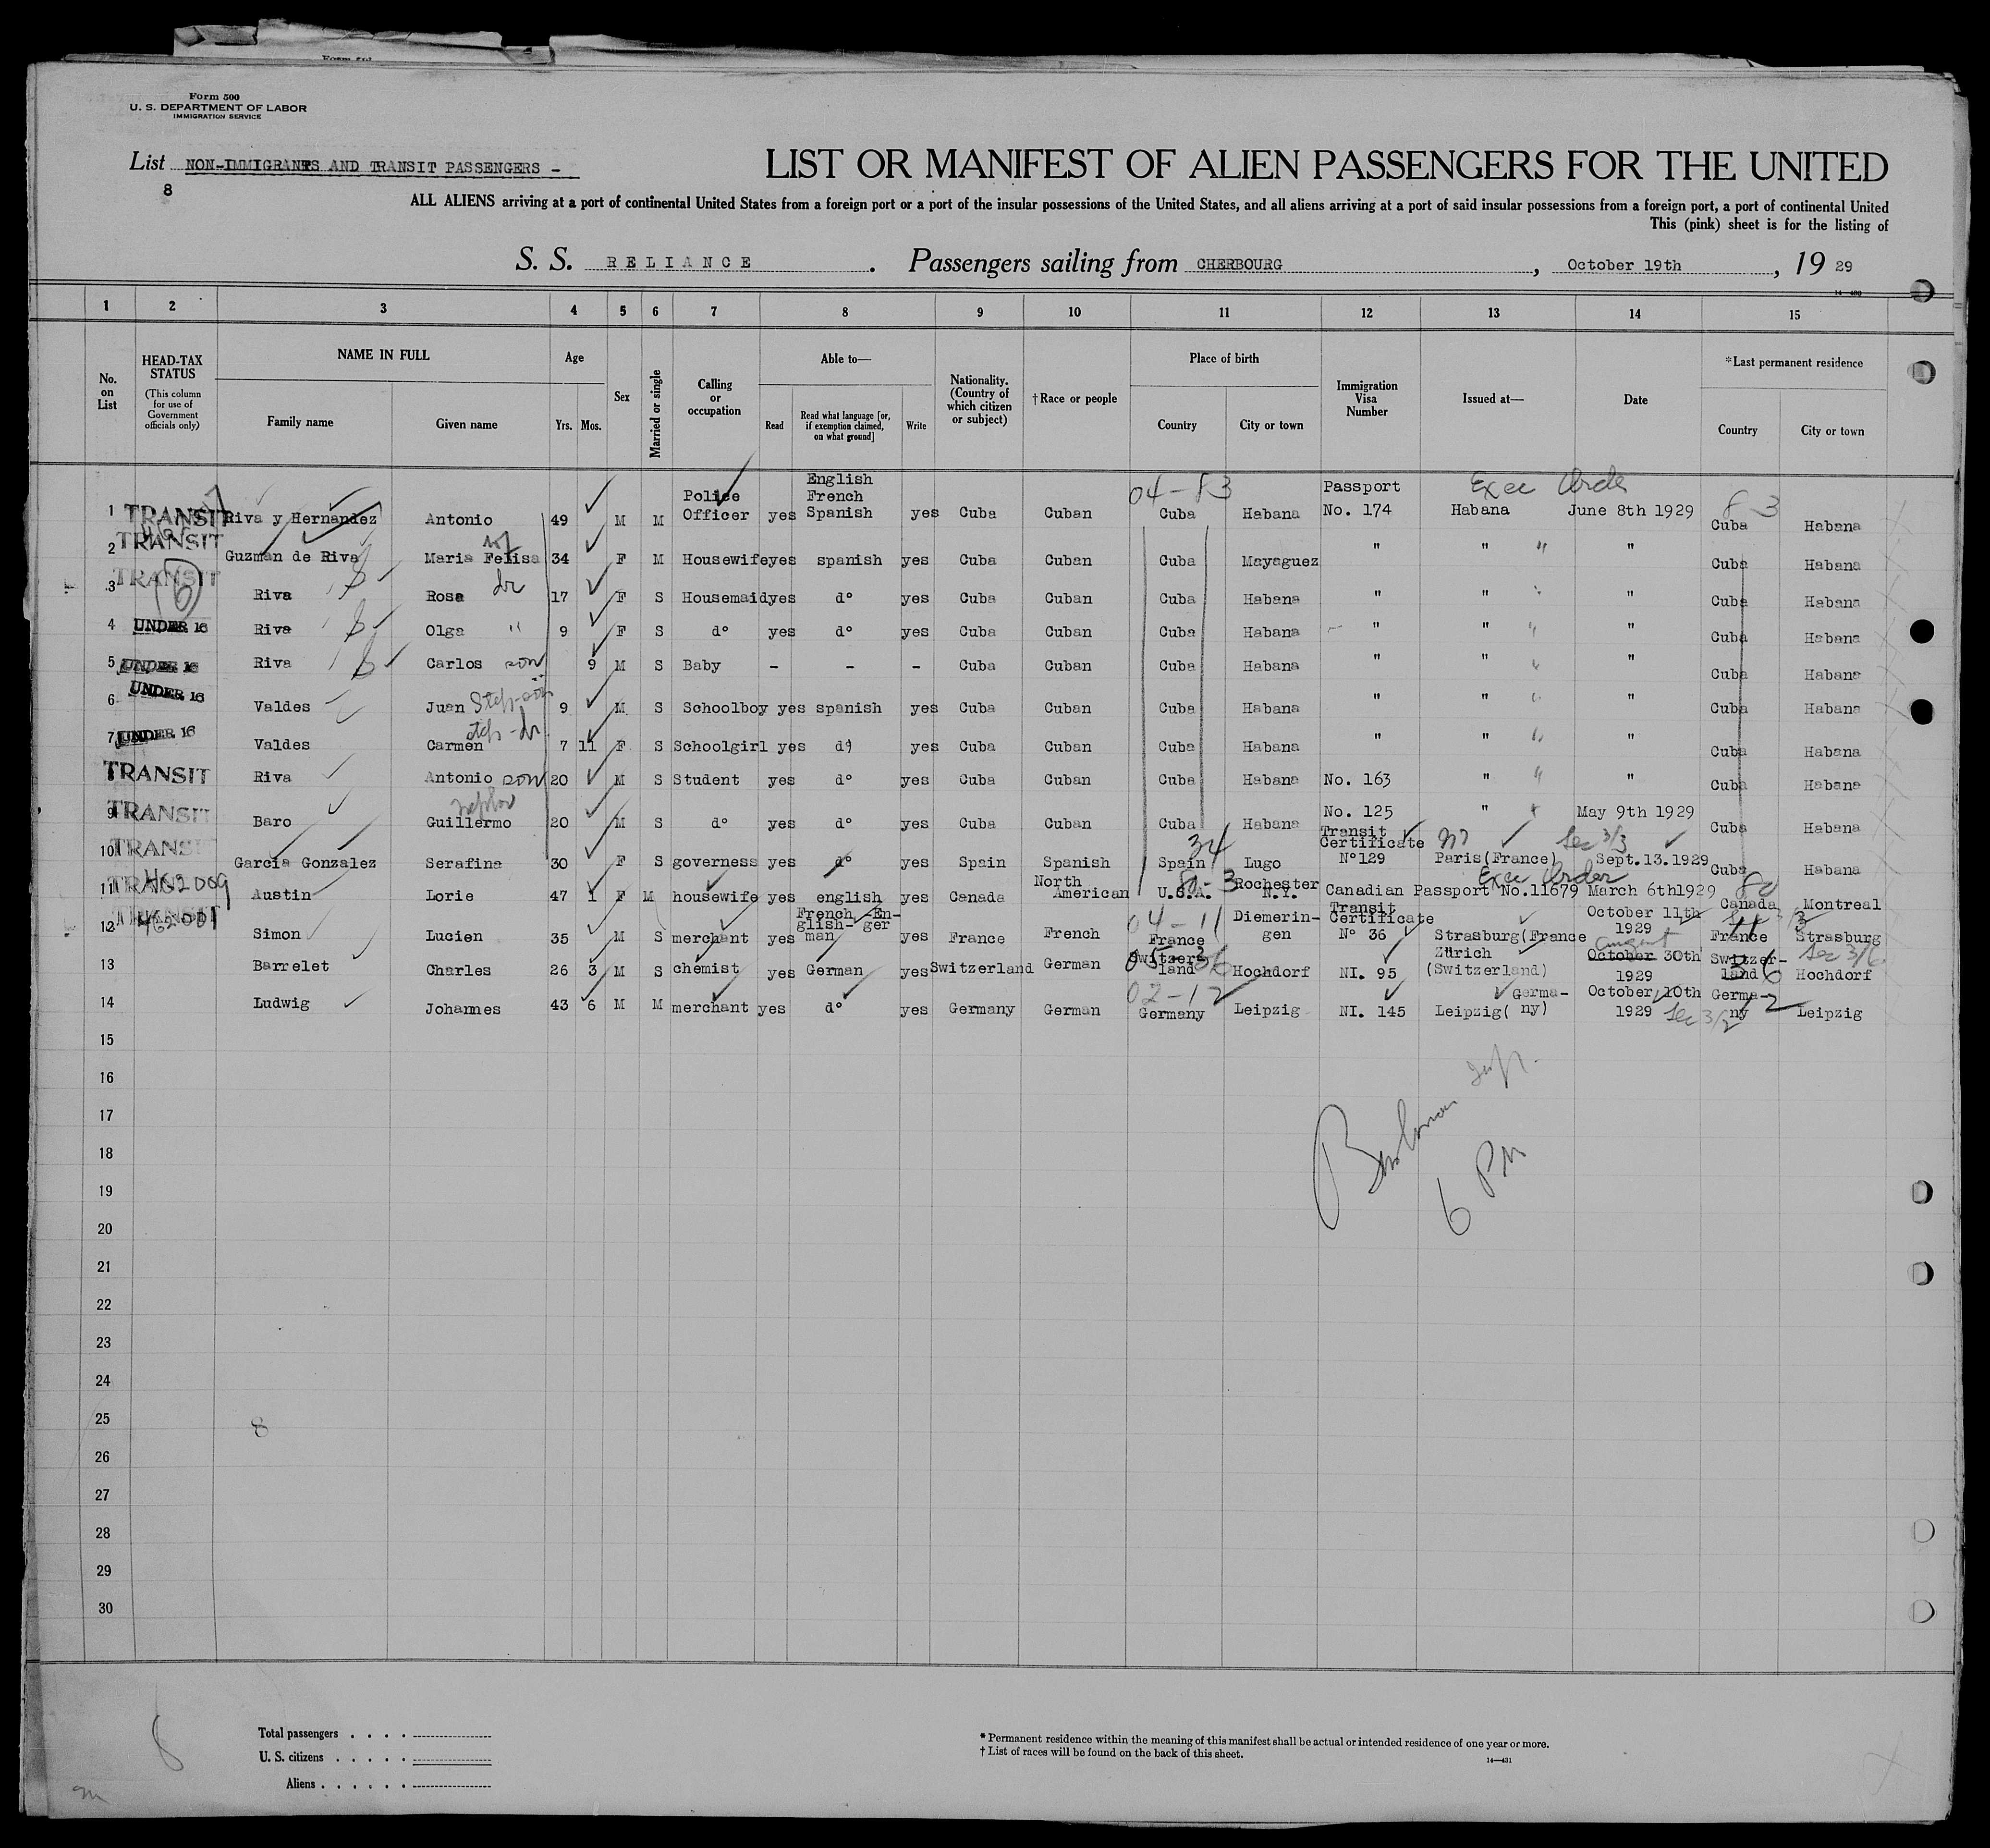 Form 500
U. S. DEPARTMENT OF LABOR
IMMIGRATION SERVICE
List NON-IMMIGRANTS AND TRANSIT PASSENGERS -
8
LIST OR MANIFEST OF ALIEN PASSENGERS FOR THE UNITED
ALL ALIENS arriving at a port of continental United States from a foreign port or a port of the insular possessions of the United States, and all aliens arriving at a port of said insular possessions from a foreign port, a port of continental United
This (pink) sheet is for the listing of
S. S. RELIANCE. Passengers sailing from CHERBOURG, October 19th, 19 29
1 2 3 4 5 6 7 8 9 10 11 12 13 14 15
No. on List
HEAD-TAX STATUS (This column for use of Government officials only)
NAME IN FULL Family name Given name
Age Yrs. Mos.
Sex
Married or single
Calling or occupation
Able to— Read Read what language [or, if exemption claimed, on what ground] Write
Nationality. (Country of which citizen or subject)
†Race or people
Place of birth Country City or town
Immigration Visa Number
Issued at—
Date
*Last permanent residence Country City or town
04-83 Exec Order 83
1 TRANSIT Riva y Hernandez Antonio 49 M M Police Officer yes English French Spanish yes Cuba Cuban Cuba Habana Passport No. 174 Habana June 8th 1929 Cuba Habana
2 TRANSIT Guzman de Riva Maria Felisa 34 F M Housewife yes spanish yes Cuba Cuban Cuba Mayaguez " " " " Cuba Habana
3 TRANSIT Riva Rosa dr 17 F S Housemaid yes d° yes Cuba Cuban Cuba Habana " " " Cuba Habana
4 UNDER 16 Riva Olga " 9 F S d° yes d° yes Cuba Cuban Cuba Habana " " " " Cuba Habana
5 UNDER 16 Riva Carlos son 9 M S Baby - - - Cuba Cuban Cuba Habana " " " Cuba Habana
6 UNDER 16 Valdes Juan Step-son 9 M S Schoolboy yes spanish yes Cuba Cuban Cuba Habana " " " Cuba Habana
7 UNDER 16 Valdes Carmen step-dr 7 11 F S Schoolgirl yes d° yes Cuba Cuban Cuba Habana " " " Cuba Habana
TRANSIT Riva Antonio son 20 M S Student yes d° yes Cuba Cuban Cuba Habana No. 163 " " " Cuba Habana
9 TRANSIT Baro Guillermo nephew 20 M S d° yes d° yes Cuba Cuban Cuba Habana No. 125 " May 9th 1929 Cuba Habana
10 TRANSIT Garcia Gonzalez Serafina 30 F S governess yes d° yes Spain Spanish 34 Spain Lugo Transit Certificate N°129 Paris(France) Sec 3/3 Sept.13.1929 Cuba Habana
11 TRANSIT Austin Lorie 47 1 F M housewife yes english yes Canada North American U.S.A. Rochester N.Y. Canadian Passport No.11679 Exec Order March 6th1929 Canada Montreal
12 TRANSIT Simon Lucien 35 M S merchant yes French-English-german yes France French 04-11 France Diemeringen Transit Certificate N° 36 Strasburg(France October 11th 1929 France Strasburg
13 Barrelet Charles 26 3 M S chemist yes German yes Switzerland German Switzerland Hochdorf NI. 95 Zürich (Switzerland) October August 30th 1929 Switzerland Hochdorf Sec 3/6
14 Ludwig Johannes 43 6 M M merchant yes d° yes Germany German 02-12 Germany Leipzig NI. 145 Leipzig(Germany) October 10th 1929 Sec 3/2 Germany 2 Leipzig
15
16
17
18
19
20
21
22
23
24
25
26
27
28
29
30
6 PM
8
8
Total passengers . . . .
U. S. citizens . . . . .
Aliens . . . . . .
* Permanent residence within the meaning of this manifest shall be actual or intended residence of one year or more.
† List of races will be found on the back of this sheet.
14—431